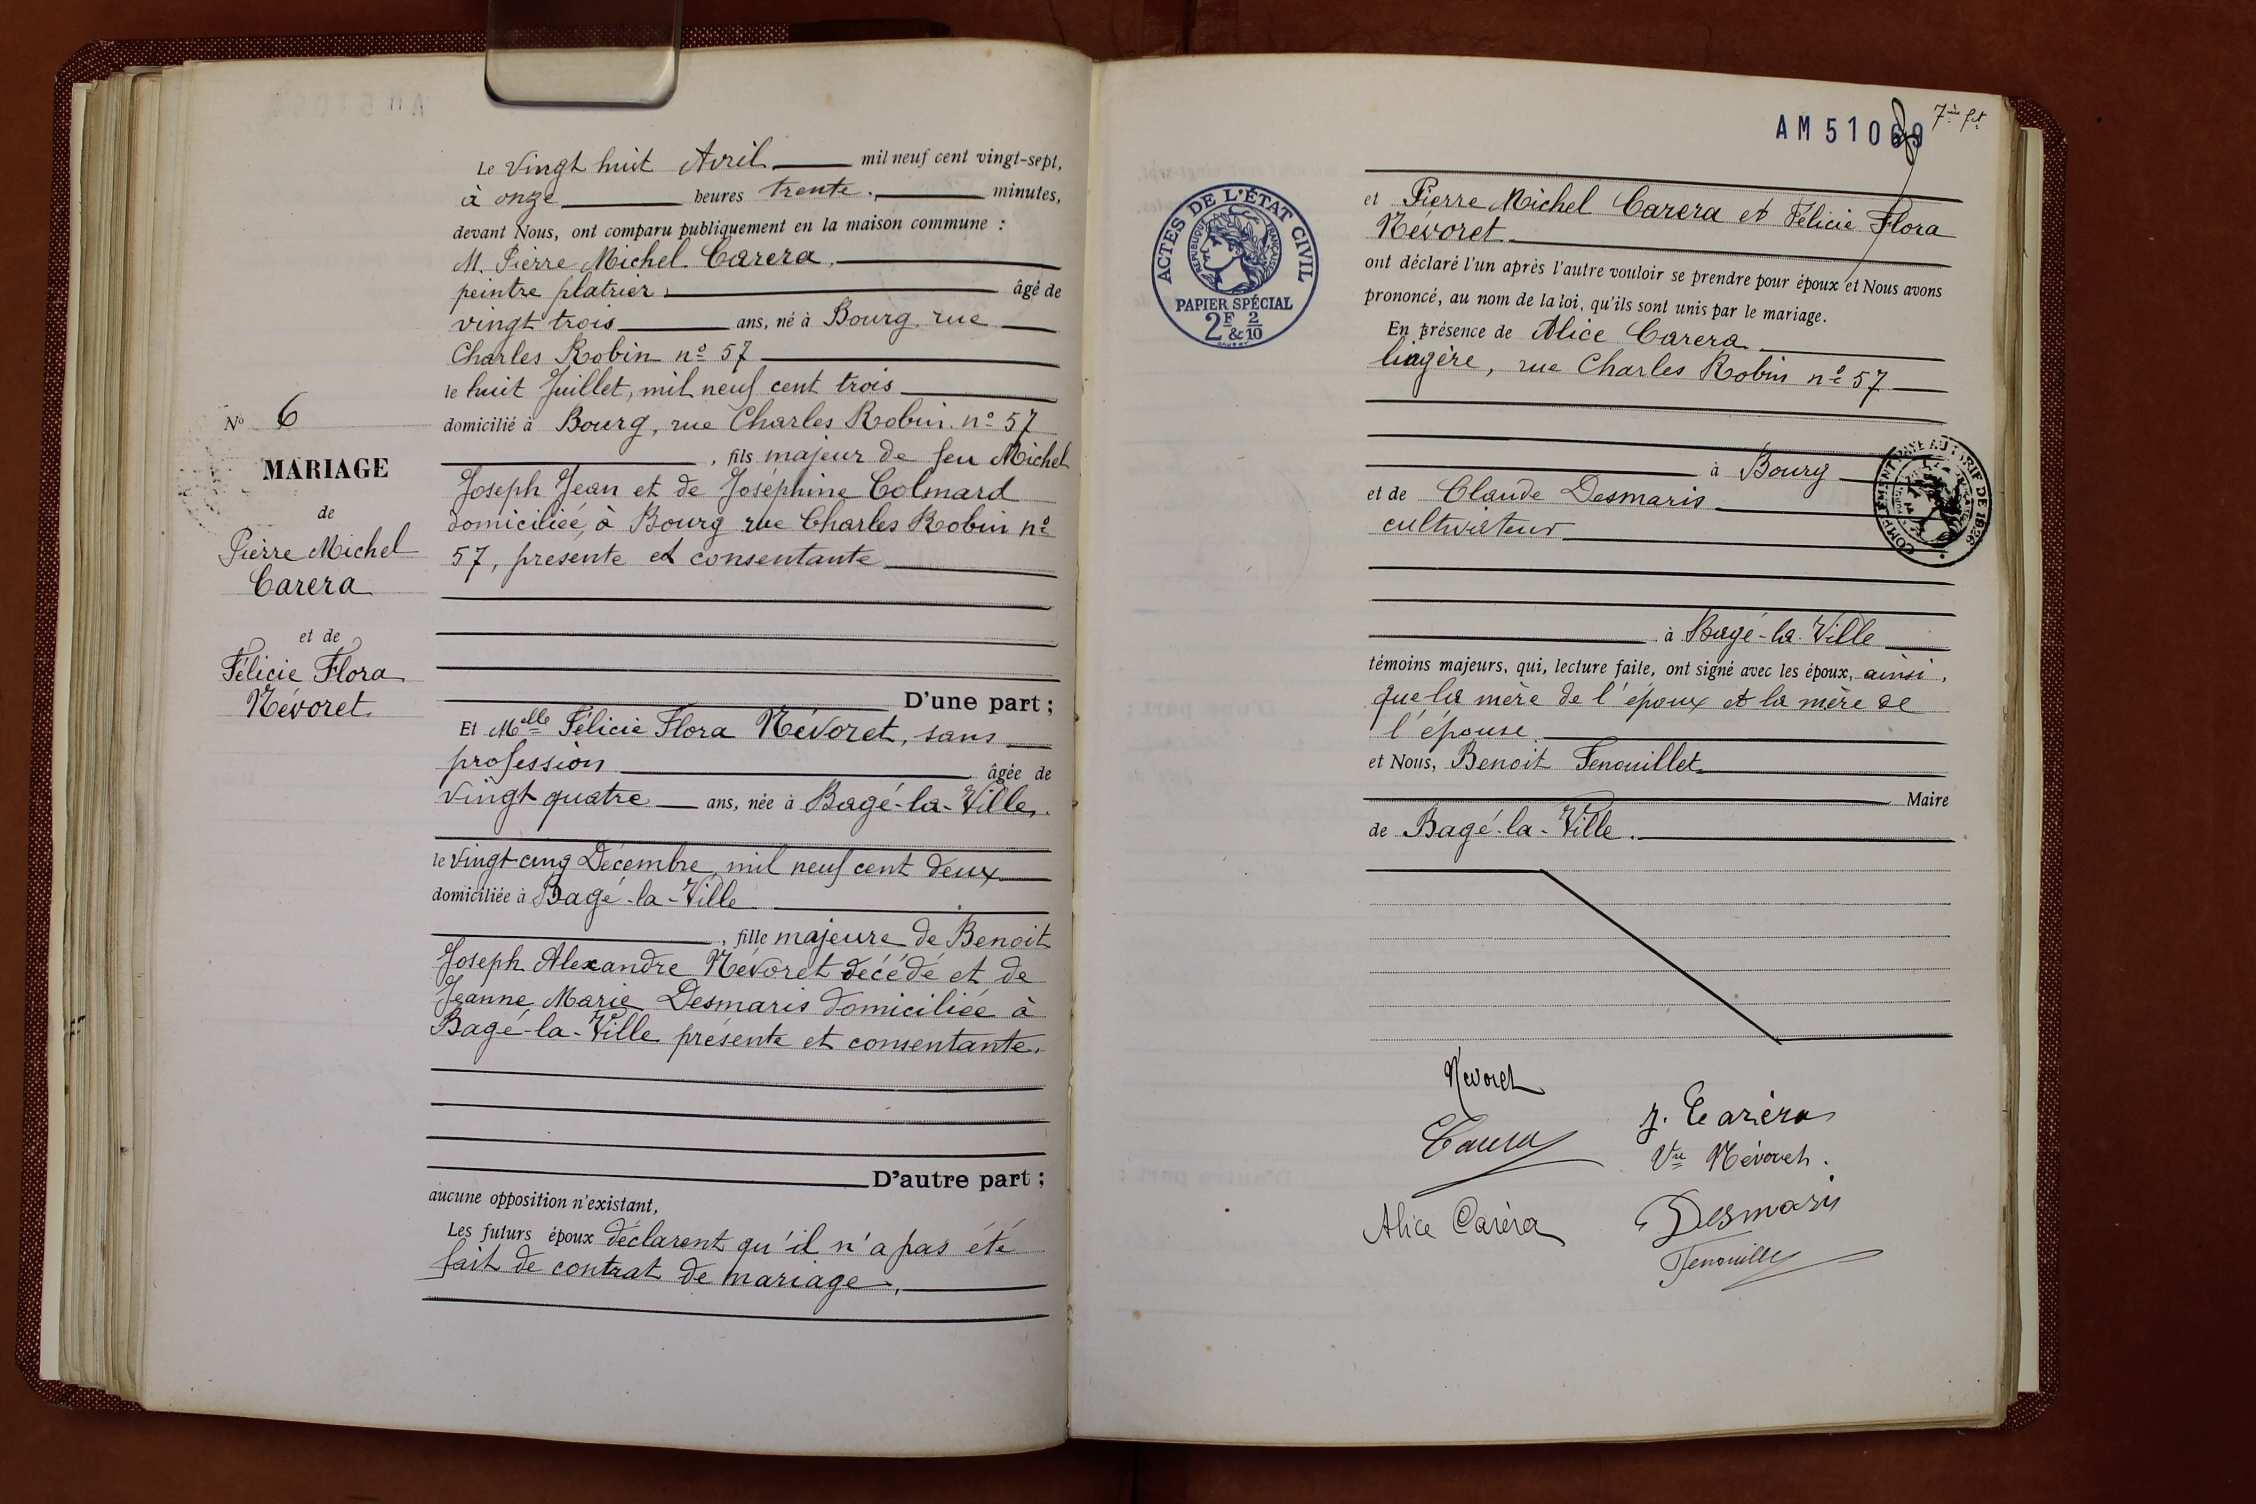 Le Vingt huit Avril mil neuf cent vingt-sept,
à onze heures trente. minutes,
devant Nous, ont comparu publiquement en la maison commune :
M. Pierre Michel Carera,
peintre platrier, âgé de
vingt trois ans, né à Bourg, rue
Charles Robin nº 57
le huit Juillet, mil neuf cent trois
domicilié à Bourg, rue Charles Robin. nº 57
, fils majeur de feu Michel
Joseph Jean et de Joséphine Colmard
domiciliée, à Bourg rue Charles Robin nº
57, présente et consentante
D'une part ;
Nº 6
MARIAGE
de
Pierre Michel
Carera
et de
Félicie Flora
Névoret.
Et Melle Félicie Flora Névoret, sans
profession âgée de
vingt quatre ans, née à Bagé-la-Ville,
le vingt-cinq Décembre, mil neuf cent deux
domiciliée à Bagé-la-Ville
, fille majeure de Benoit
Joseph Alexandre Névoret décédé et de
Jeanne Marie Desmaris domiciliée à
Bagé-la-Ville présente et consentante.
D'autre part ;
aucune opposition n'existant,
Les futurs époux déclarent qu'il n'a pas été
fait de contrat de mariage,
AM 51069
ACTES DE L'ÉTAT CIVIL
RÉPUBLIQUE FRANÇAISE
PAPIER SPÉCIAL
2F & 2/10
et Pierre Michel Carera et Félicie Flora
Névoret
ont déclaré l'un après l'autre vouloir se prendre pour époux et Nous avons
prononcé, au nom de la loi, qu'ils sont unis par le mariage.
En présence de Alice Carera
lingère, rue Charles Robin nº 57
à Bourg
et de Claude Desmaris
cultivateur
à Bagé-la-Ville
témoins majeurs, qui, lecture faite, ont signé avec les époux, ainsi,
que la mère de l'époux et la mère de
l'épouse.
et Nous, Benoit Fenouillet
Maire
de Bagé-la-Ville.
Névoret
Carera
J. Caréra
Vve Névoret.
Alice Caréra
Desmaris
Fenouillet